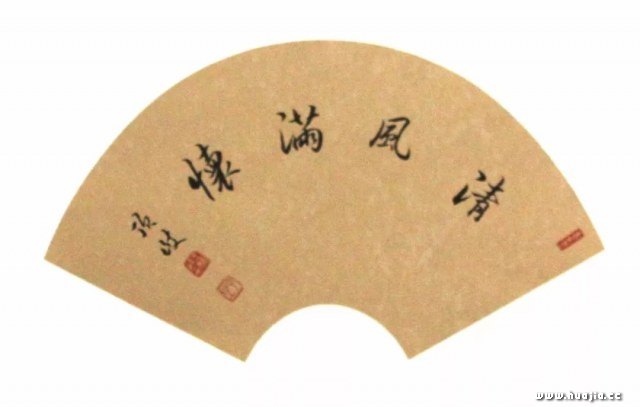 清風滿懷
www.huajia.cc